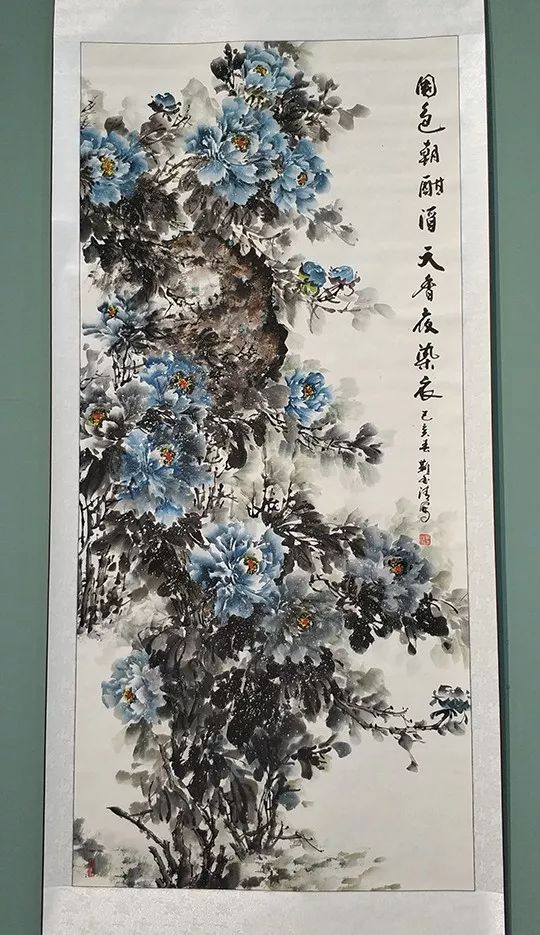 國色朝酣酒天香夜染衣
己亥春